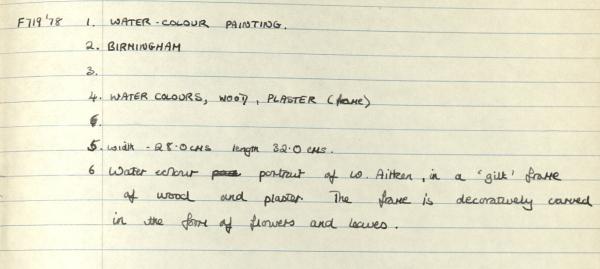 F719'78 1. WATER-COLOUR PAINTING.
2. BIRMINGHAM
3.
4. WATER COLOURS, WOOD, PLASTER (frame)
6.
5. width - 28.0 CMS length 32.0 CMS.
6 Water colour portrait of W. Aitken, in a 'gilt' frame
of wood and plaster. The frame is decoratively carved
in the form of flowers and leaves.